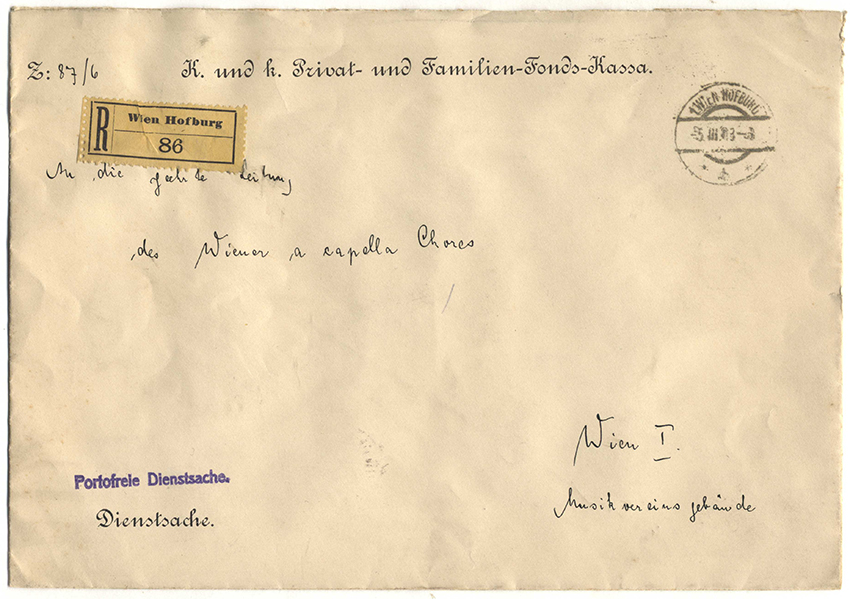 Z: 87/6
K. und k. Privat- und Familien-Fonds-Kassa.
R
Wien Hofburg
86
1. WIEN HOFBURG
An die geehrte Leitung
des Wiener a capella Chores
Wien I.
Musikvereinsgebäude
Portofreie Dienstsache.
Dienstsache.